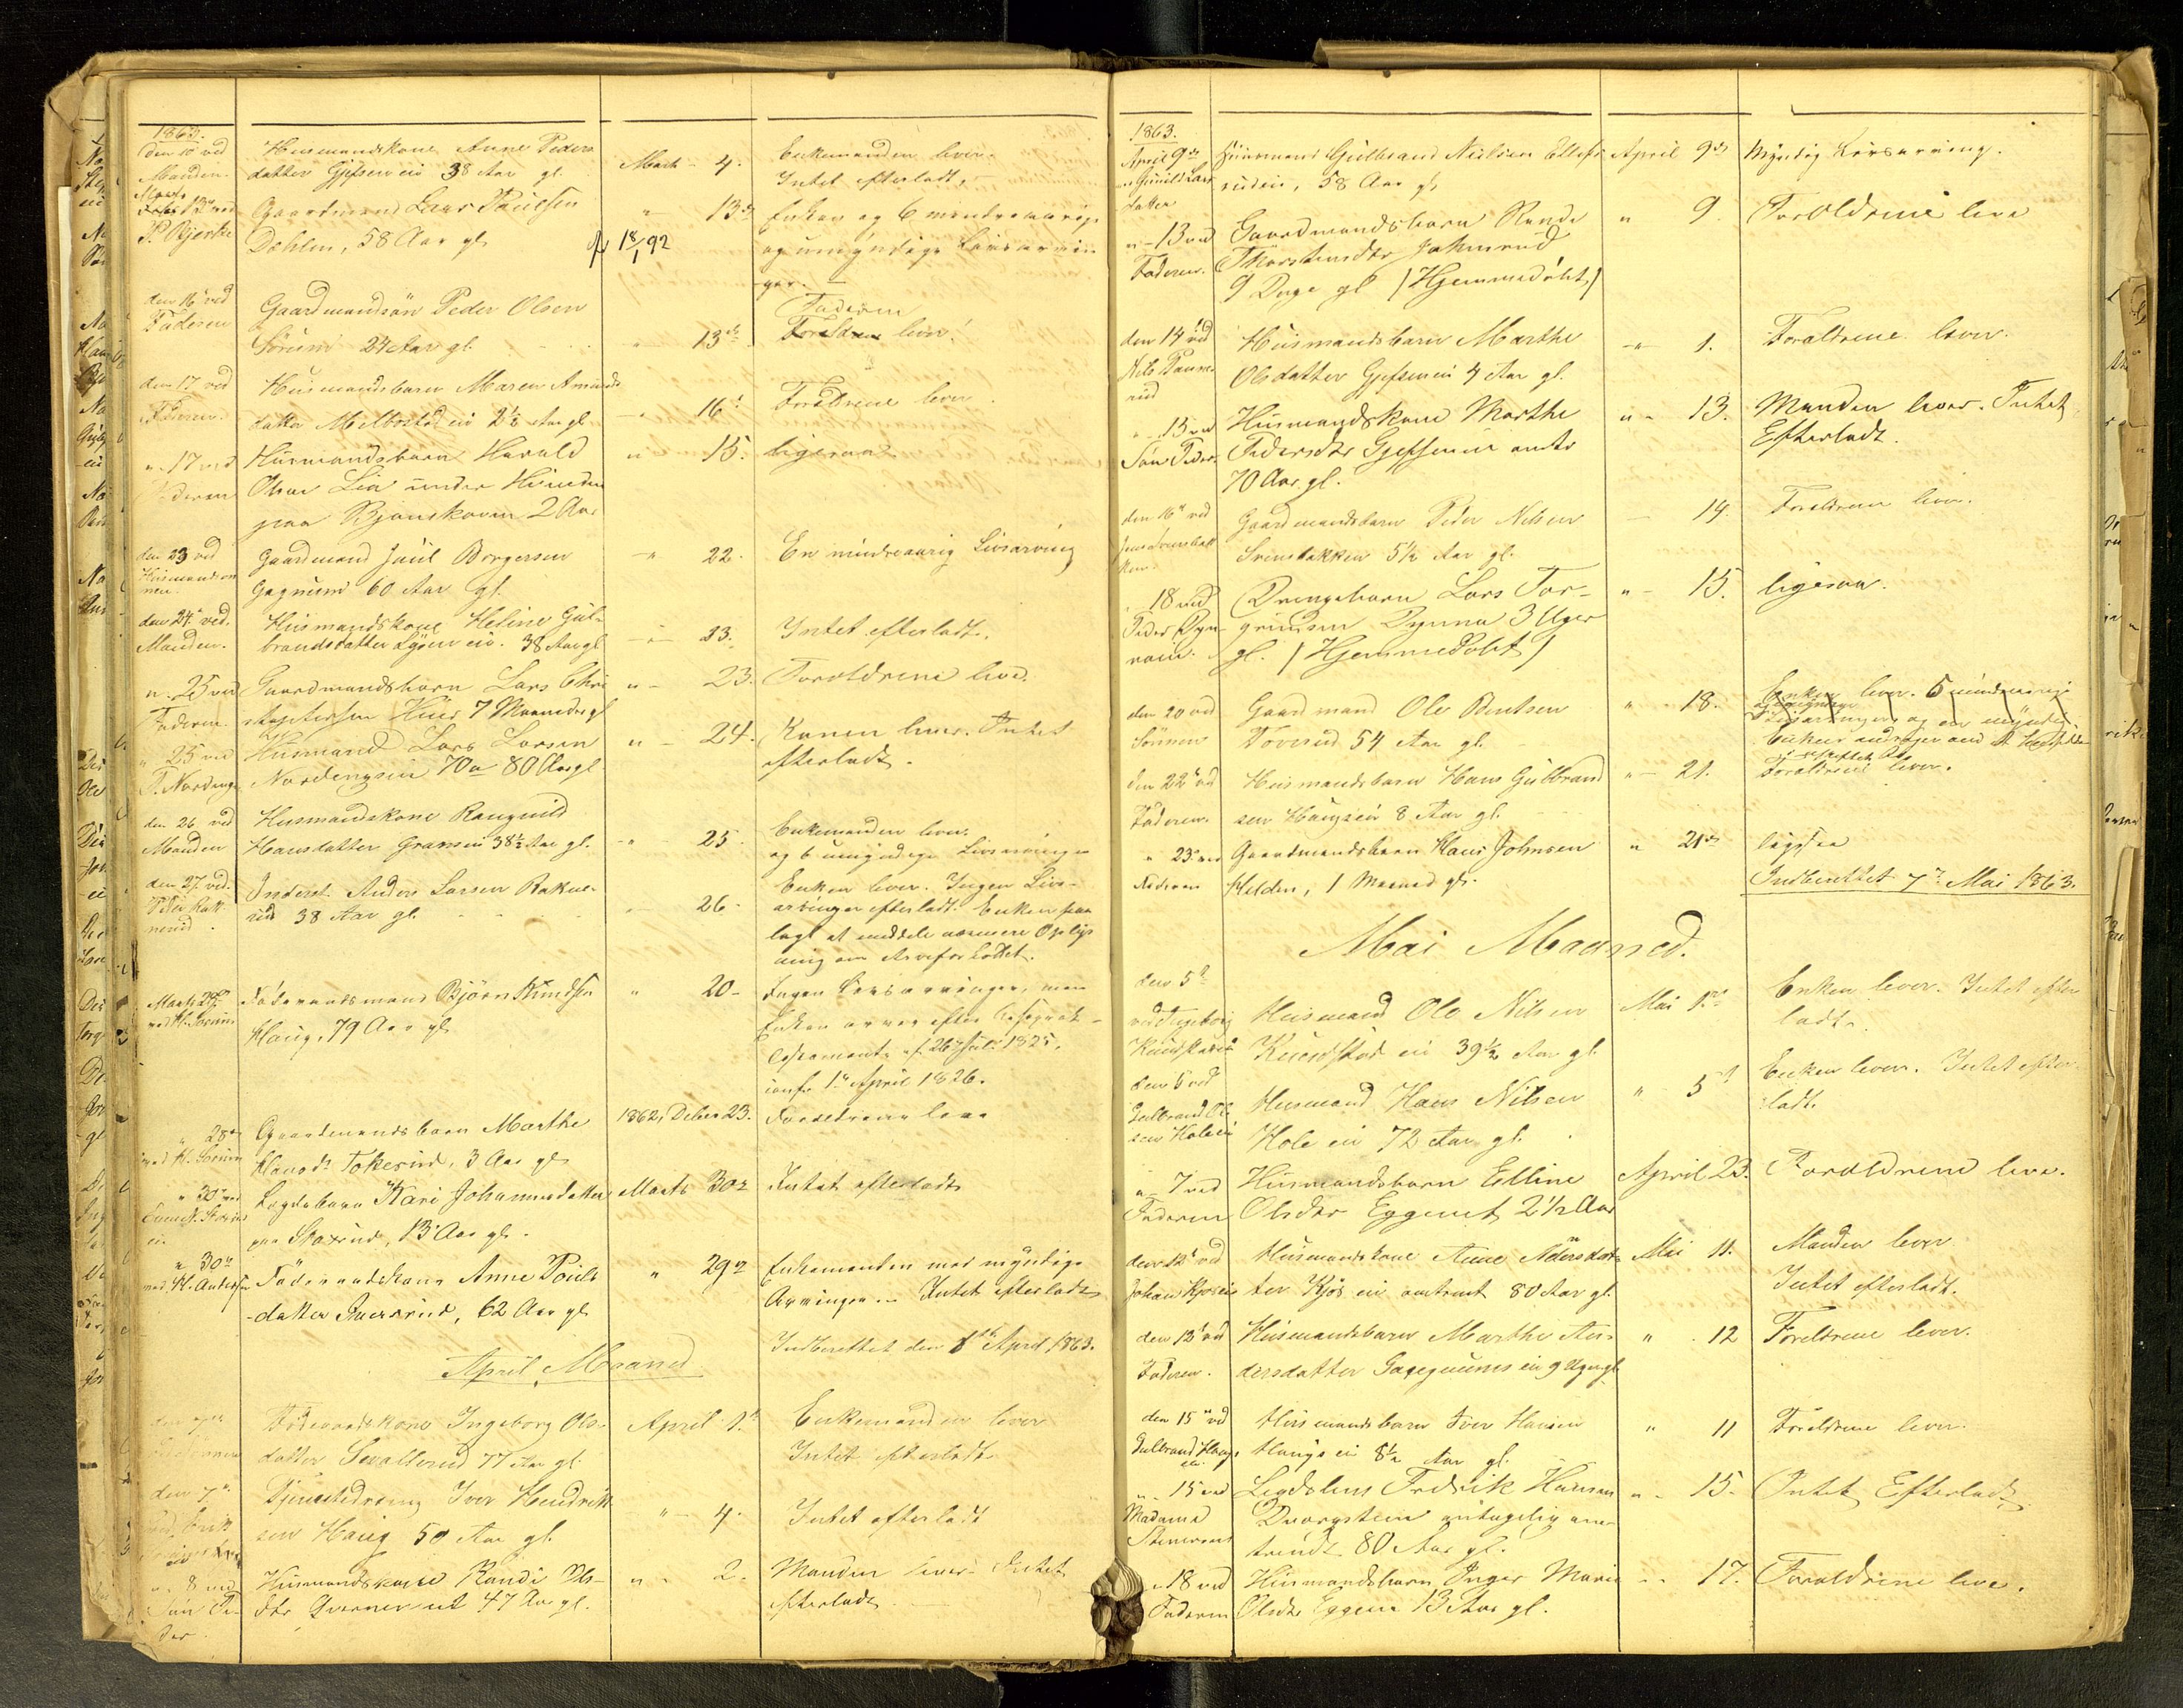 1863.
den 10 ved
Manden.
Husmandskone Anne Peders
datter Gjefsen eie 38 Aar gl.
Marts 4.
Enkemanden lever.
Intet efterladt.
13de ved
P. Bjerke
Gaardmand Lars Paulsen
Dæhlen, 58 Aar gl.
" 13de
18/1 92
Enken og 6 mindreaarige
og umyndige Livsarvin-
ger.
den 16 ved
Faderen
Gaardmandsøn Peder Olsen
Sørum 24 Aar gl.
" 13de
Faderen
Forældrene lever.
den 17 ved
Faderen.
Husmandsbarn Maren Amunds
datter Melbostad eie 2½ Aar gl.
" 16.
Forældrene lever.
" 17 ved
Faderen
Husmandsbarn Harald
Olsen Lia under Hinden
paa Bjoneskoven 2 Aar
" 15.
ligesaa
den 23 ved
Husmandsen
Gaardmand Juul Borgersen
Gagnum 60 Aar gl.
" 22.
En mindreaarig Livsarving
den 24 ved.
Manden.
Husmandskone Heline Gul-
brandsdatter Lysen eie. 38 Aar gl.
" 23.
Intet efterladt.
" 25 ved
Faderen.
Gaardmandsbarn Lars Chri
stophersen 7 Maaneder gl
" 23.
Forældrene leve.
" 25 ved
P. Nordeng
Husmand Lars Larsen
Nordengseie 70 a 80 Aar gl.
" 24.
Konen lever. Intet
efterladt.
den 26 ved
Manden
Husmandskone Rangnild
Hansdatter Gransei 38½ Aar gl.
" 25
Enkemanden lever.
og 6 umyndige Livsarvinger
den 27 ved.
Peder Rakk-
nerud
Inderst Anders Larsen Rakne-
rud 38 Aar gl.
" 26.
Enken lever. Ingen Livs-
arvinger efterladt. Enken paa
lagt at meddele nærmere Oplys
ning om Arveforholdet.
Marts 28
ved H. Sørum
Føderaadsmand Bjørn Knudsen
Haug, 79 Aar gl.
" 20
Ingen Livsarvinger, men
Enken arver efter
Testament af 26 Juli 1825.
conf. 1 April 1826.
" 28
ved H. Sørum
Gaardmandsbarn Marthe
Hansdr Tokerud, 3 Aar gl.
1862, Decbr 23.
Forældrene leve
" 30 ved
Legdebarn Kari Johannesdatter
paa Staxrud, 13 Aar gl.
Marts 30
Intet efterladt
" 30
ved H. Andersen
Føderaadskone Anne Pouls
datter Iversrud, 62 Aar gl.
" 29
Enkemanden med myndige
Arvinger. Intet efterladt
Indberettet den 8 April 1863.
April Maaned
den 7
Føderaadskone Ingeborg Ols-
datter Sevallerud 77 Aar gl.
April 1.
Enkemanden lever
Intet efterladt
den 7
Tjenestedreng Iver Hendrik
sen Haug 50 Aar gl.
" 4.
Intet efterladt
" 8 ved
Husmandskone Randi Ols-
dtr Kværneneiet 47 Aar gl.
" 2.
Manden lever. Intet
efterladt
1863.
April 9de
Gunild Lars
datter
Huusmand Gulbrand Nielsen Ellefs
rudeie, 58 Aar gl.
April 9de
Myndig Livsarving.
" 13 ved
Faderen.
Gaardmandsbarn Randi
Thorstensdtr Johnsrud
9 Dage gl. (Hjemmedøbt)
" 9.
Forældrene leve
den 14 ved
Nils
rud
Husmandsbarn Marthe
Olsdatter Gjefsen eie 4 Aar gl.
" 1.
Forældrene lever.
" 15 ved
Søn Peder.
Husmandskone Marthe
Pedersdtr Gjefseneie omtr
70 Aar gl.
" 13.
Manden lever. Intet
Efterladt.
den 16 ved
Jens Svensbak
ken.
Gaardmandsbarn Peder Nilsen
Svensbakken 5½ Aar gl.
" 14.
Forældrene lever.
" 18 ved
Peder Dyn-
Drengebarn Lars Tor-
grimsen Dynna 3 Uger
gl. (Hjemmedøbt)
" 15.
ligesaa.
den 20 ved
Sønnen
Gaardmand Ole Bentsen
Toverud 54 Aar gl.
" 18.
Enken lever. 5 mindreaarige
Livsarvinger og en myndig.
den 22 ved
Faderen.
Husmandsbarn Hans Gulbrand
sen Haugseie 8 Aar gl.
" 21.
Forældrene lever.
" 23 ved
Faderen
Gaardmandsbarn Hans Johnsen
Helden, 1 Maaned gl.
" 21de
ligesaa
Indberettet 7de Mai 1863.
Mai Maaned.
den 5
ved Ingeborg
Husmand Ole Nilsen
Knudstad eie 39½ Aar gl.
Mai 1ste
Enken lever. Intet efter
ladt.
den 6 ved
Gulbrand Ol-
sen Holeeie
Husmand Hans Nilsen
Hole eie 72 Aar gl.
" 5
Enken lever. Intet efter
ladt.
" 7 ved
Faderen
Husmandsbarn Elline
Olsdtr Eggeeiet 2½ Aar
April 23.
Forældrene leve.
den 12 ved
Johan Kjøseie
Husmandskone Anne Andersdat-
ter Kjøs eie omtrent 80 Aar gl.
Mai 11.
Manden lever
Intet efterladt.
den 12 ved
Faderen.
Husmandsbarn Marthe An-
dersdatter Gagnums eie 9 Uger gl.
" 12
Forældrene lever.
den 15 ved
Gulbrand Haugs
eie
Husmandsbarn Iver Hansen
Haugs eie 8½ Aar gl.
" 11
Forældrene lever.
" 15 ved
Madame
Stenersen
Legdslem Fredrik Hansen
Dvergsten antagelig om-
trendt 80 Aar gl.
" 15.
Intet Efterladt
" 18 ved
Faderen
Husmandsbarn Inger Marie
Olsdtr Eggeeie 13 Aar gl.
" 17.
Forældrene leve.